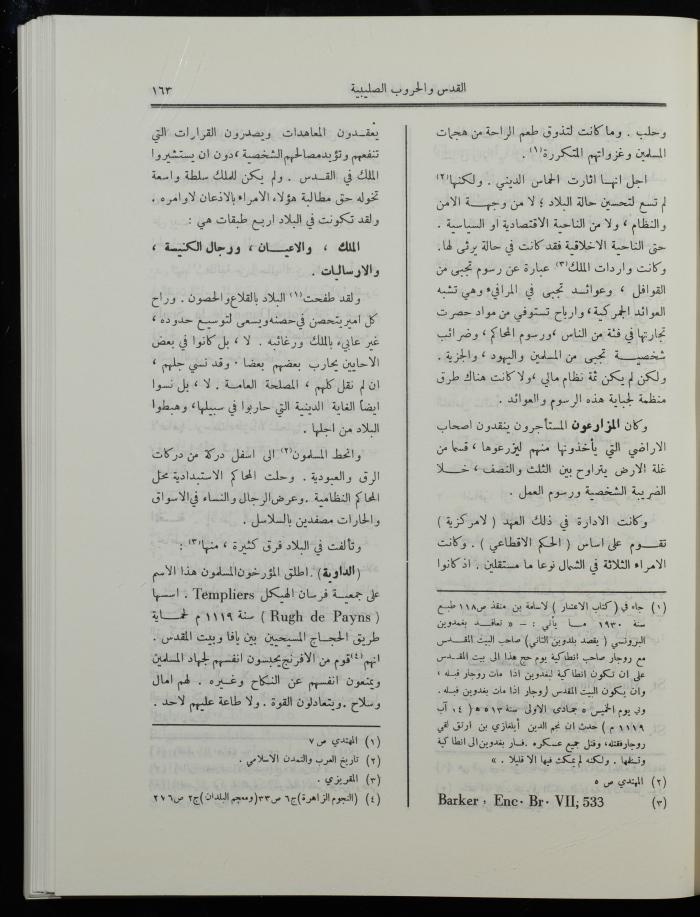 القدس والحروب الصليبية
١٦٣
وحلب . وما كانت لتذوق طعم الراحة من هجمات
المسلمين وغزواتهم المتكررة(١) .
اجل انها اثارت الحماس الديني . ولكنها(٢)
لم تسع لتحسين حالة البلاد ؛ لا من وجهة الامن
والنظام ، ولا من الناحية الاقتصادية او السياسية .
حتى الناحية الاخلاقية فقد كانت في حالة يرثى لها.
وكانت واردات الملك(٣) عبارة عن رسوم تجبى من
القوافل ، وعوائد تجبى في المرافيء وهي تشبه
العوائد الجمركية ، وارباح تستوفي من مواد حصرت
تجارتها في فئة من الناس ، ورسوم المحاكم ، وضرائب
شخصية تجبى من المسلمين واليهود ، والجزية .
ولكن لم يكن ثمة نظام مالي ، ولا كانت هناك طرق
منظمة لجباية هذه الرسوم والعوائد .
وكان المزارعون المستأجرون ينقدون اصحاب
الاراضي التي يأخذونها منهم ليزرعوها ، قسما من
غلة الارض يتراوح بين الثلث والنصف ، خلا
الضريبة الشخصية ورسوم العمل .
وكانت الادارة في ذلك العهد ( لامركزية )
تقوم على اساس ( الحكم الاقطاعي ) . وكانت
الامراء الثلاثة في الشمال نوعا ما مستقلين . اذ كانوا
(١) جاء في (كتاب الاعتبار ) لاسامة بن منقذ ص١١٨ طبع
سنة ١٩٣٠ ما يأتي : – « تعاقد بغدوين
البرونسي ( يقصد بلدوين الثاني) صاحب البيت المقدس
مع روجار صاحب انطاكية يوم حج هذا الى بيت المقدس
على ان تكون انطاكية لبغدوين اذا مات روجار قبله ،
وان يكون البيت المقدس لروجار اذا مات بغدوين قبله.
وفي يوم الخميس ٥ جمادى الاولى سنة ٥١٣ ه ( ١٤ آب
١١١٩ م ) حدث ان نجم الدين أيلغازي بن ارتق لقي
روجار فقتله، وقتل جميع عسكره . فسار بغدوين الى انطاكية
وتسلمها . ولكنه لم يمكث فيها الا قليلا . »
(٢) المهتدي ص ٥
(٣) Barker , Enc. Br. VII; 533
يعقدون المعاهدات ويصدرون القرارات التي
تنفعهم وتؤيد مصالحهم الشخصية ، دون ان يستشيروا
الملك في القدس . ولم يكن للملك سلطة واسعة
تخوله حق مطالبة هؤلاء الامراء بالاذعان لاوامره .
ولقد تكونت في البلاد اربع طبقات هي :
الملك ، والاعيان ، ورجال الكنيسة ،
والارساليات .
ولقد طفحت(١) البلاد بالقلاع والحصون . وراح
كل امير يتحصن في حصنه ويسعى لتوسيع حدوده ،
غير عابيء بالملك ورغائبه . لا ، بل كانوا في بعض
الاحايين يحارب بعضهم بعضا . وقد نسي جلهم ،
ان لم نقل كلهم ، المصلحة العامة . لا ، بل نسوا
ايضاً الغاية الدينية التي حاربوا في سبيلها، وهبطوا
البلاد من اجلها .
وانحط المسلمون(٢) الى اسفل دركة من دركات
الرق والعبودية . وحلت المحاكم الاستبدادية محل
المحاكم النظامية . وعرض الرجال والنساء في الاسواق
والحارات مصفدين بالسلاسل .
وتألفت في البلاد فرق كثيرة ، منها(٣) :
(الداوية) . اطلق المؤرخون المسلمون هذا الاسم
على جمعية فرسان الهيكل Templiers . اسسها
( Rugh de Payns ) سنة ١١١٩ م لحماية
طريق الحجاج المسيحيين بين يافا وبيت المقدس .
انهم(٤) قوم من الافرنج يحبسون انفسهم لجهاد المسلمين
ويمنعون انفسهم عن النكاح وغيره . لهم اموال
وسلاح . ويتعادلون القوة . ولا طاعة عليهم لاحد .
(١) المهتدي ص ٧
(٢) تاريخ العرب والتمدن الاسلامي .
(٣) المقريزي .
(٤) (النجوم الزاهرة) ج٦ ص٣٣ (ومعجم البلدان) ج٢ ص٢٧٦